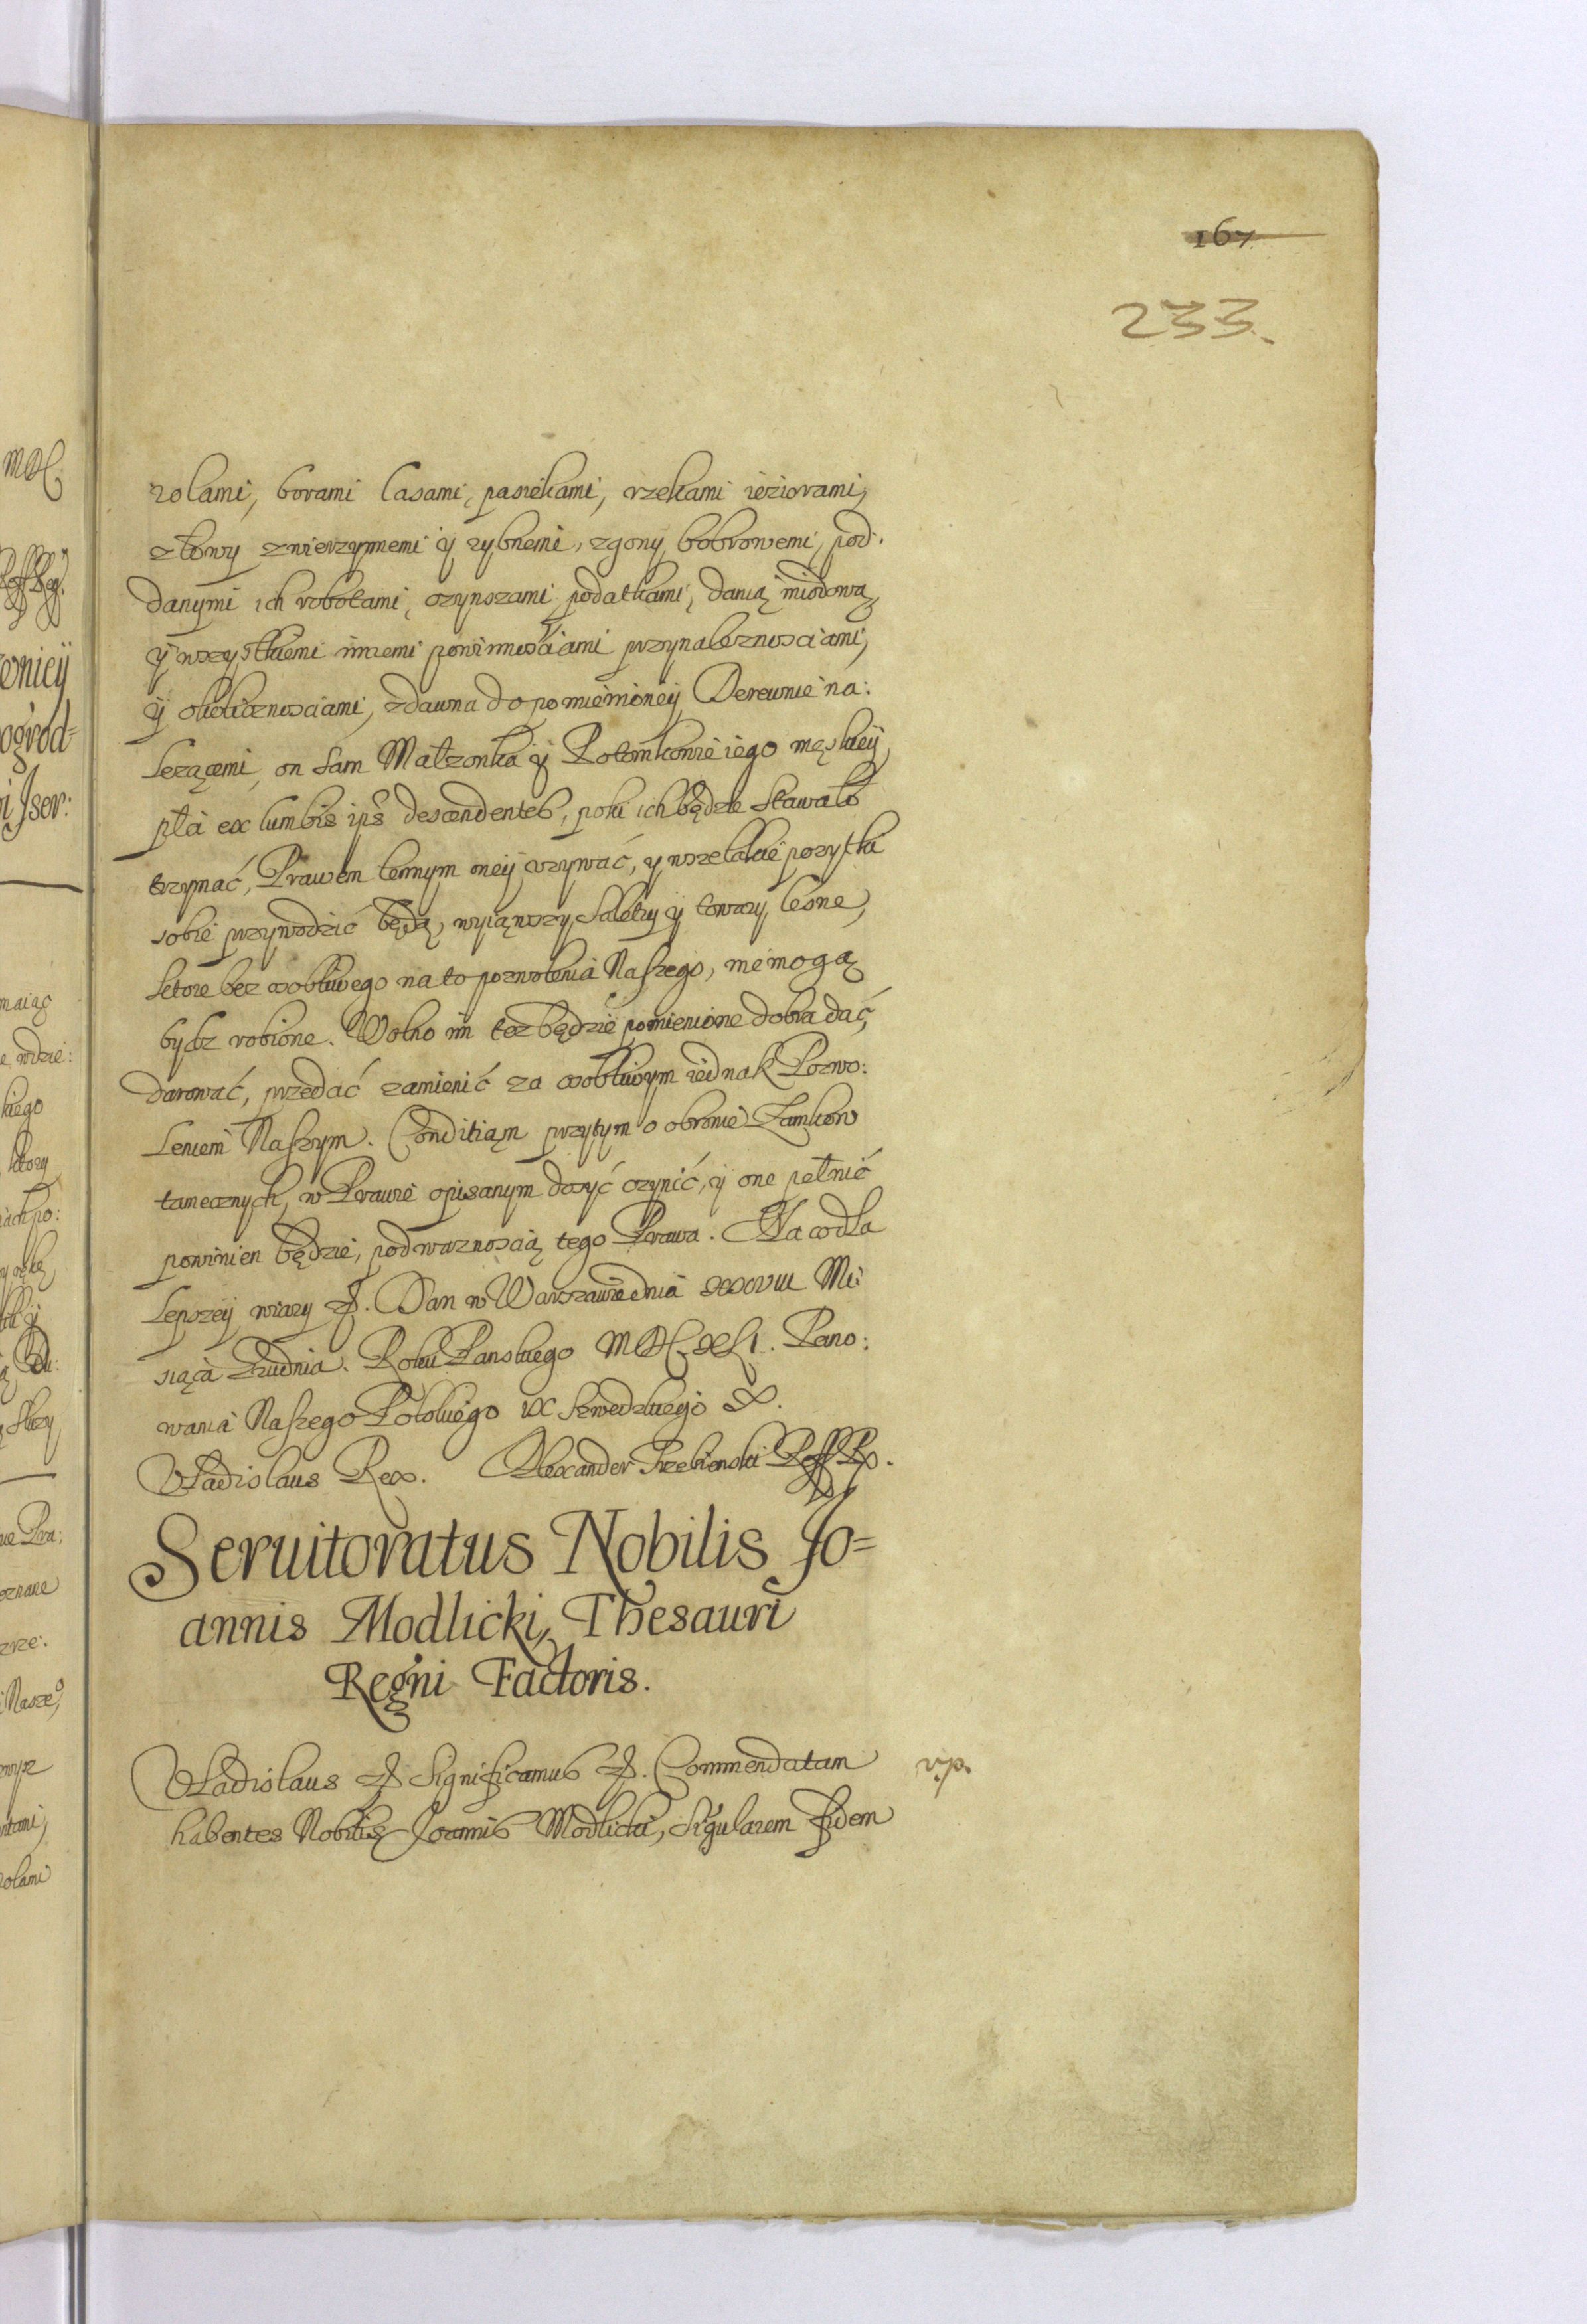 167
233.
rolami, borami lasami, pasiekami, rzekami ieziorami,
złowy zwierzynnemi ÿ rybnemi, zgony bobrowemi, pod.
danymi ich robotami, czynszami, podatkami, danią miodową,
ÿ wszystkiemi innemi powinnosciami przynaleznosciami,
ÿ okolicznosciami, zdawna do pomienioneÿ Derewnie na:
lezącemi, on sam Małzonka ÿ Potomkowie iego męskieÿ
płci ex lumbis ips̃ descendentes, poki ich będzie stawało
trzymać, Prawem lennym oneÿ vzywać, y wszelakie pozytki
sobie przywodzić będą, wyiąwszy Saletry ÿ towary lesne,
ktore bez osobliwego na to pozwolenia Naszego, niemogą
bydz robione. Wolno im tez będzie pomienione dobra dać,
darować, przedać zamienić za osobliwym iednak Pozwo:
leniem Naszym. Conditiąm przytym o obronie Zamkow
tamecznych, w Prawie opisanym dosyć czynić, ÿ one pełnić
powinien będzie, pod waznoscią tego Prawa. Na co dla
lepszeÿ wiary &. Dan w Warszawie dnia XXXVIII Mie
siąca Grudnia. Roku Panskiego MDCXLI. Pano:
wania Naszego Polskiego IX Szwedzkiego X.
Vladislaus Rex. Alexander Trzebienski
Seruitoratus Nobilis Jo=
annis Modlicki, Thesauri
Regni Factoris.
Vladislaus & Significamus &. Commendatam
habentes Nobilis Joannis Modlicki, Sigularem fidem
v.p.